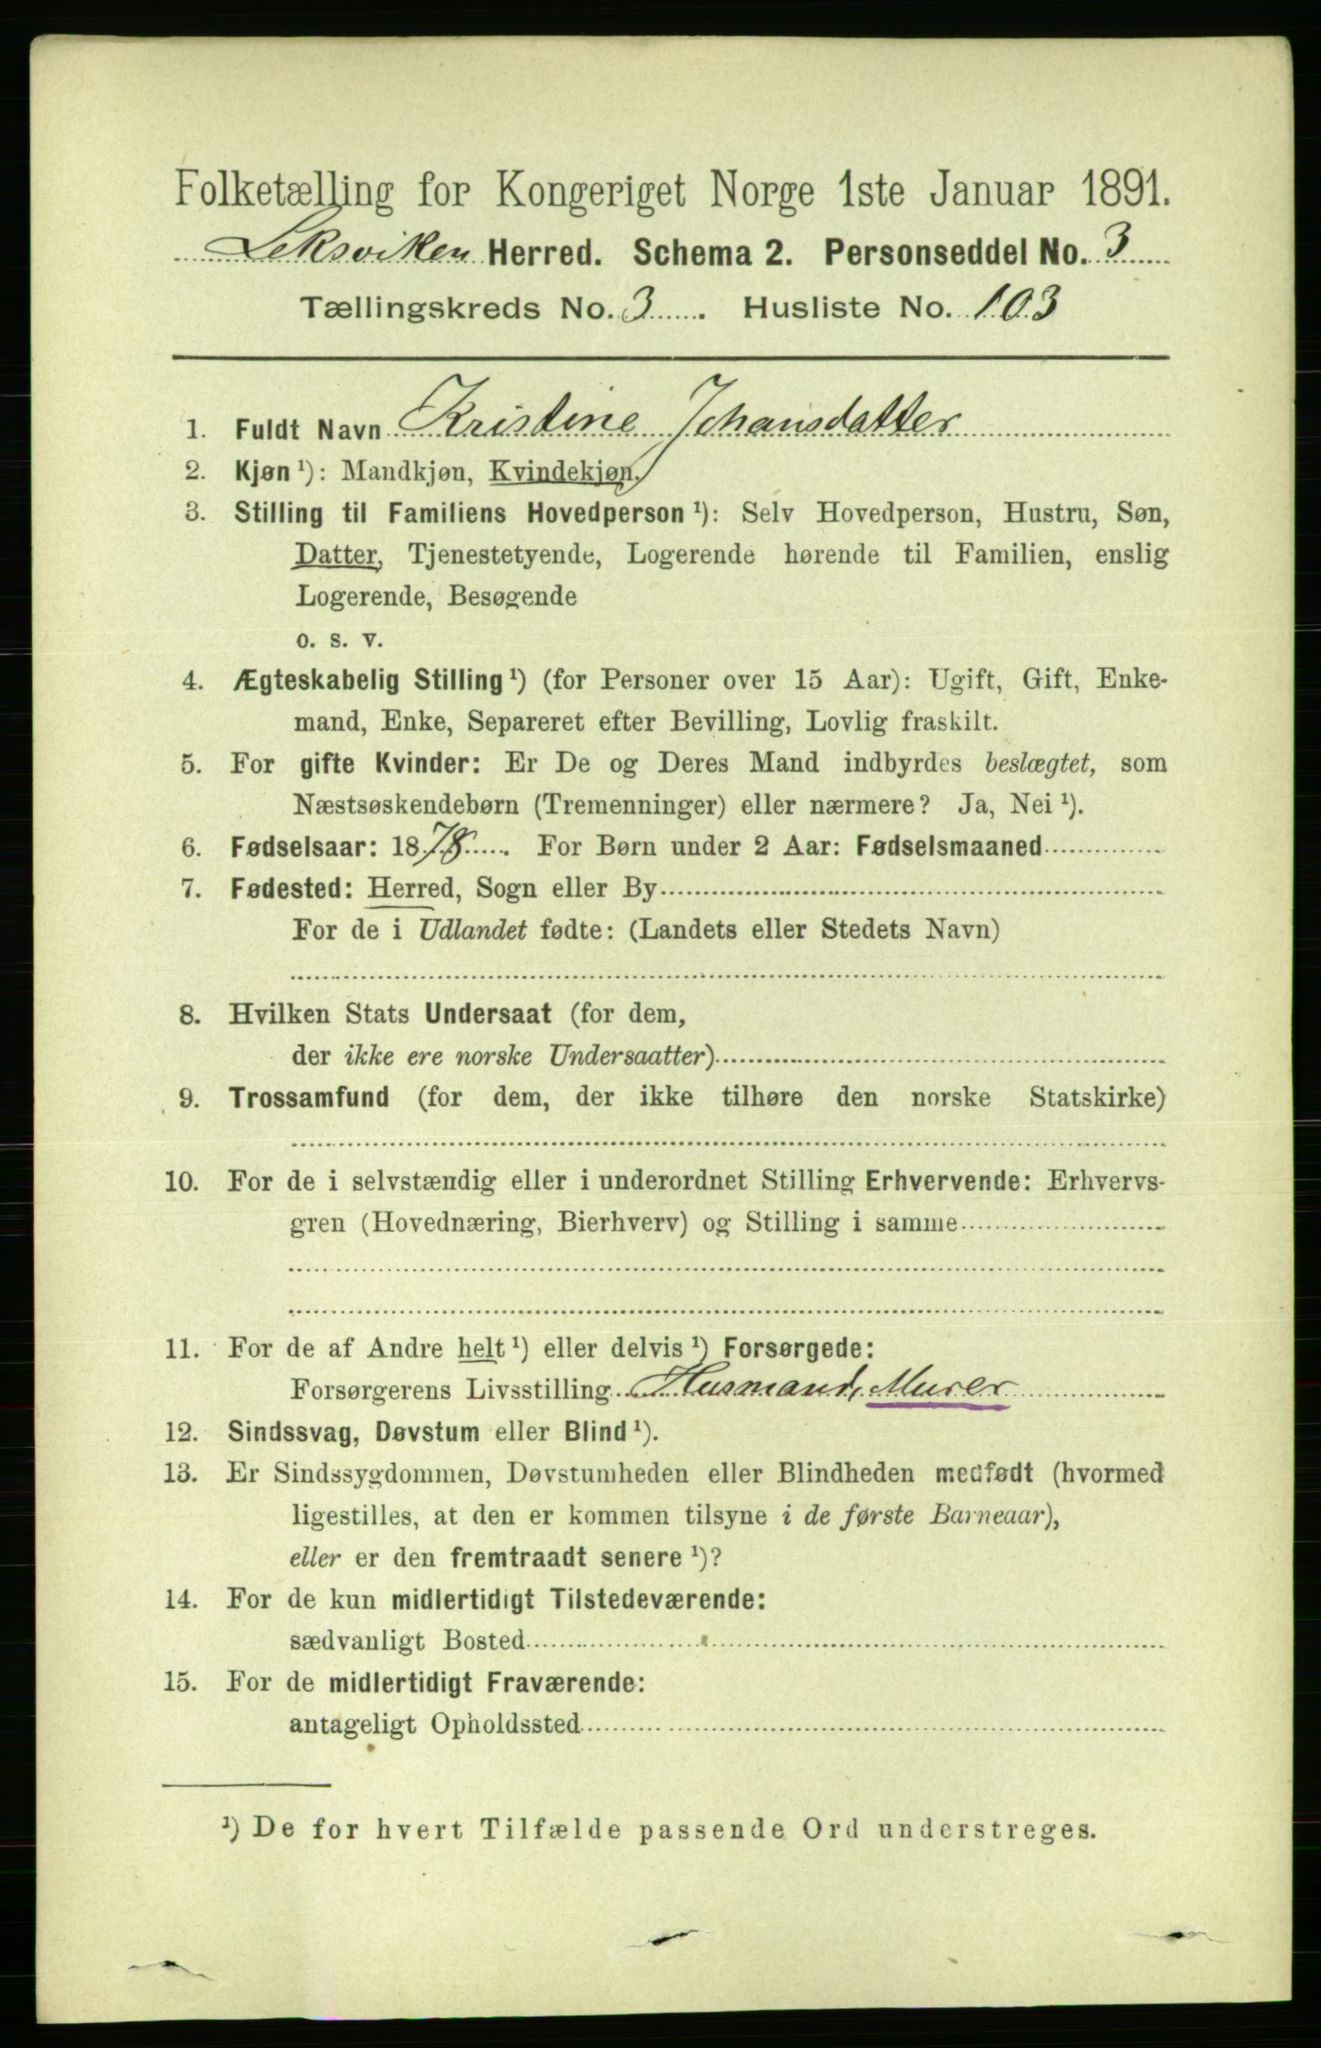 Folketælling for Kongeriget Norge 1ste Januar 1891.
Leksviken Herred. Schema 2. Personseddel No. 3
Tællingskreds No. 3. Husliste No. 103
1. Fuldt Navn Kristine Johansdatter
2. Kjøn ¹): Mandkjøn, Kvindekjøn.
3. Stilling til Familiens Hovedperson ¹): Selv Hovedperson, Hustru, Søn,
Datter, Tjenestetyende, Logerende hørende til Familien, enslig
Logerende, Besøgende
o. s. v.
4. Ægteskabelig Stilling ¹) (for Personer over 15 Aar): Ugift, Gift, Enke-
mand, Enke, Separeret efter Bevilling, Lovlig fraskilt.
5. For gifte Kvinder: Er De og Deres Mand indbyrdes beslægtet, som
Næstsøskendebørn (Tremenninger) eller nærmere? Ja, Nei ¹).
6. Fødselsaar: 1878. For Børn under 2 Aar: Fødselsmaaned
7. Fødested: Herred, Sogn eller By
For de i Udlandet fødte: (Landets eller Stedets Navn)
8. Hvilken Stats Undersaat (for dem,
der ikke ere norske Undersaatter)
9. Trossamfund (for dem, der ikke tilhøre den norske Statskirke)
10. For de i selvstændig eller i underordnet Stilling Erhvervende: Erhvervs-
gren (Hovednæring, Bierhverv) og Stilling i samme
11. For de af Andre helt ¹) eller delvis ¹) Forsørgede:
Forsørgerens Livsstilling Husmand, Murer
12. Sindssvag, Døvstum eller Blind ¹).
13. Er Sindssygdommen, Døvstumheden eller Blindheden medfødt (hvormed
ligestilles, at den er kommen tilsyne i de første Barneaar),
eller er den fremtraadt senere ¹)?
14. For de kun midlertidigt Tilstedeværende:
sædvanligt Bosted
15. For de midlertidigt Fraværende:
antageligt Opholdssted
¹) De for hvert Tilfælde passende Ord understreges.